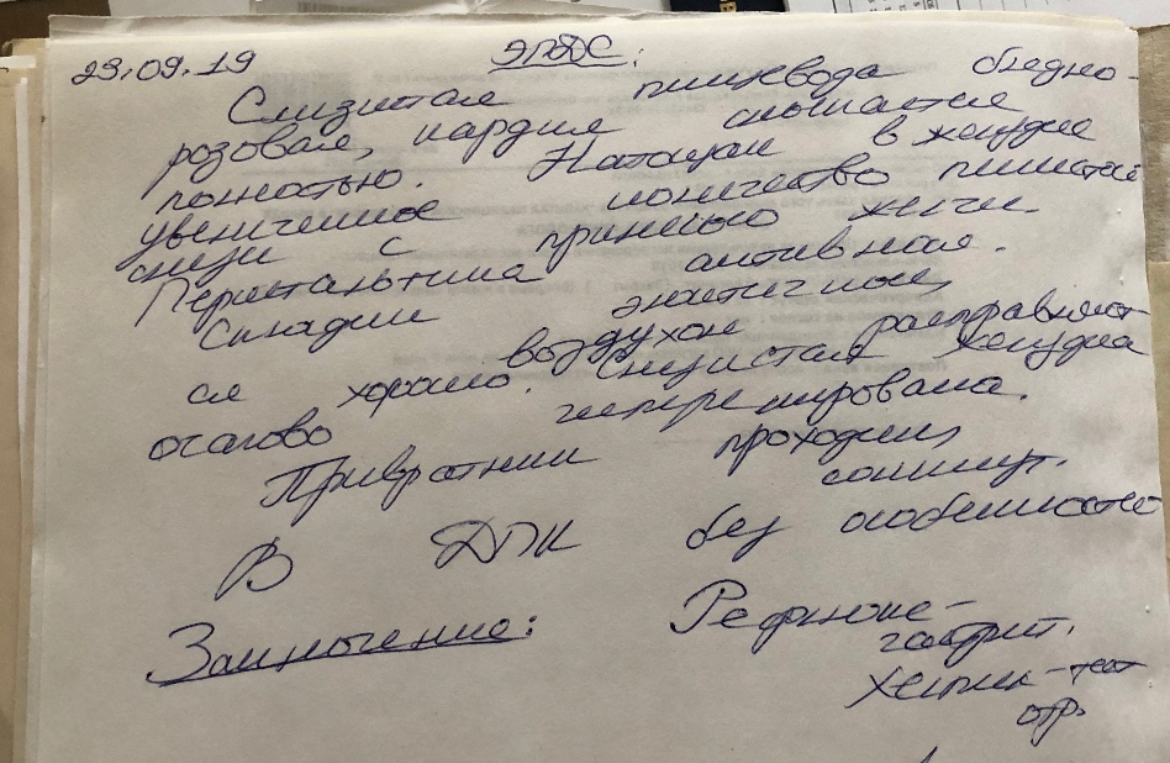 23.09.19 ЭГДС:
Слизистая пищевода бледно-
розовая, кардия смыкается
полностью. Натощак в желудке
увеличенное количество пенистой
слизи с примесью желчи.
Перистальтика активная.
Складки эластичные,
воздухом расправляют-
ся хорошо. Слизистая желудка
очагово гиперемирована.
Привратник проходим,
сомкнут.
В ДПК без особенностей
Заключение: Рефлюкс-
гастрит.
Хелик-тест
отр.